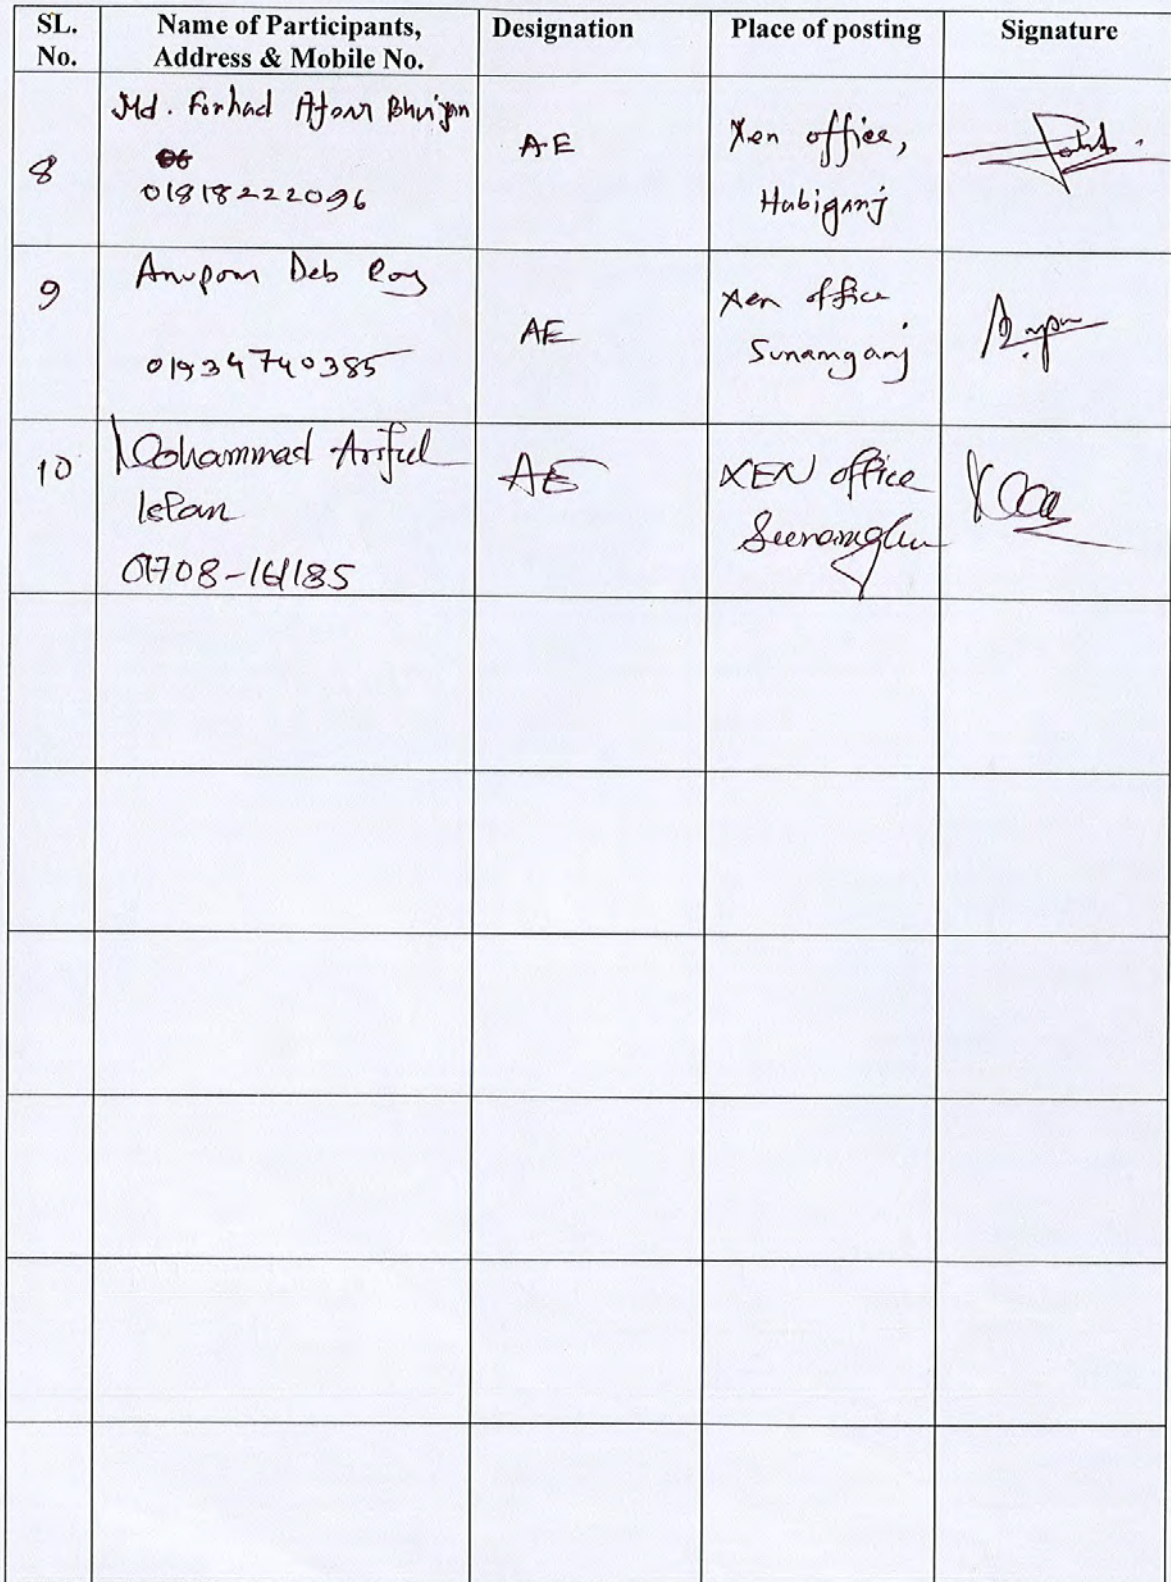 SL. No.
Name of Participants, Address & Mobile No.
Designation
Place of posting
Signature
8
Md. Forhad Afsar Bhuiyan
01818222096
A.E
Xen office,
Habiganj
9
Anupom Deb Roy
01934740385
AE
Xen office
Sunamganj
10
Mohammad Ariful
Islam
01708-161185
AE
XEN office